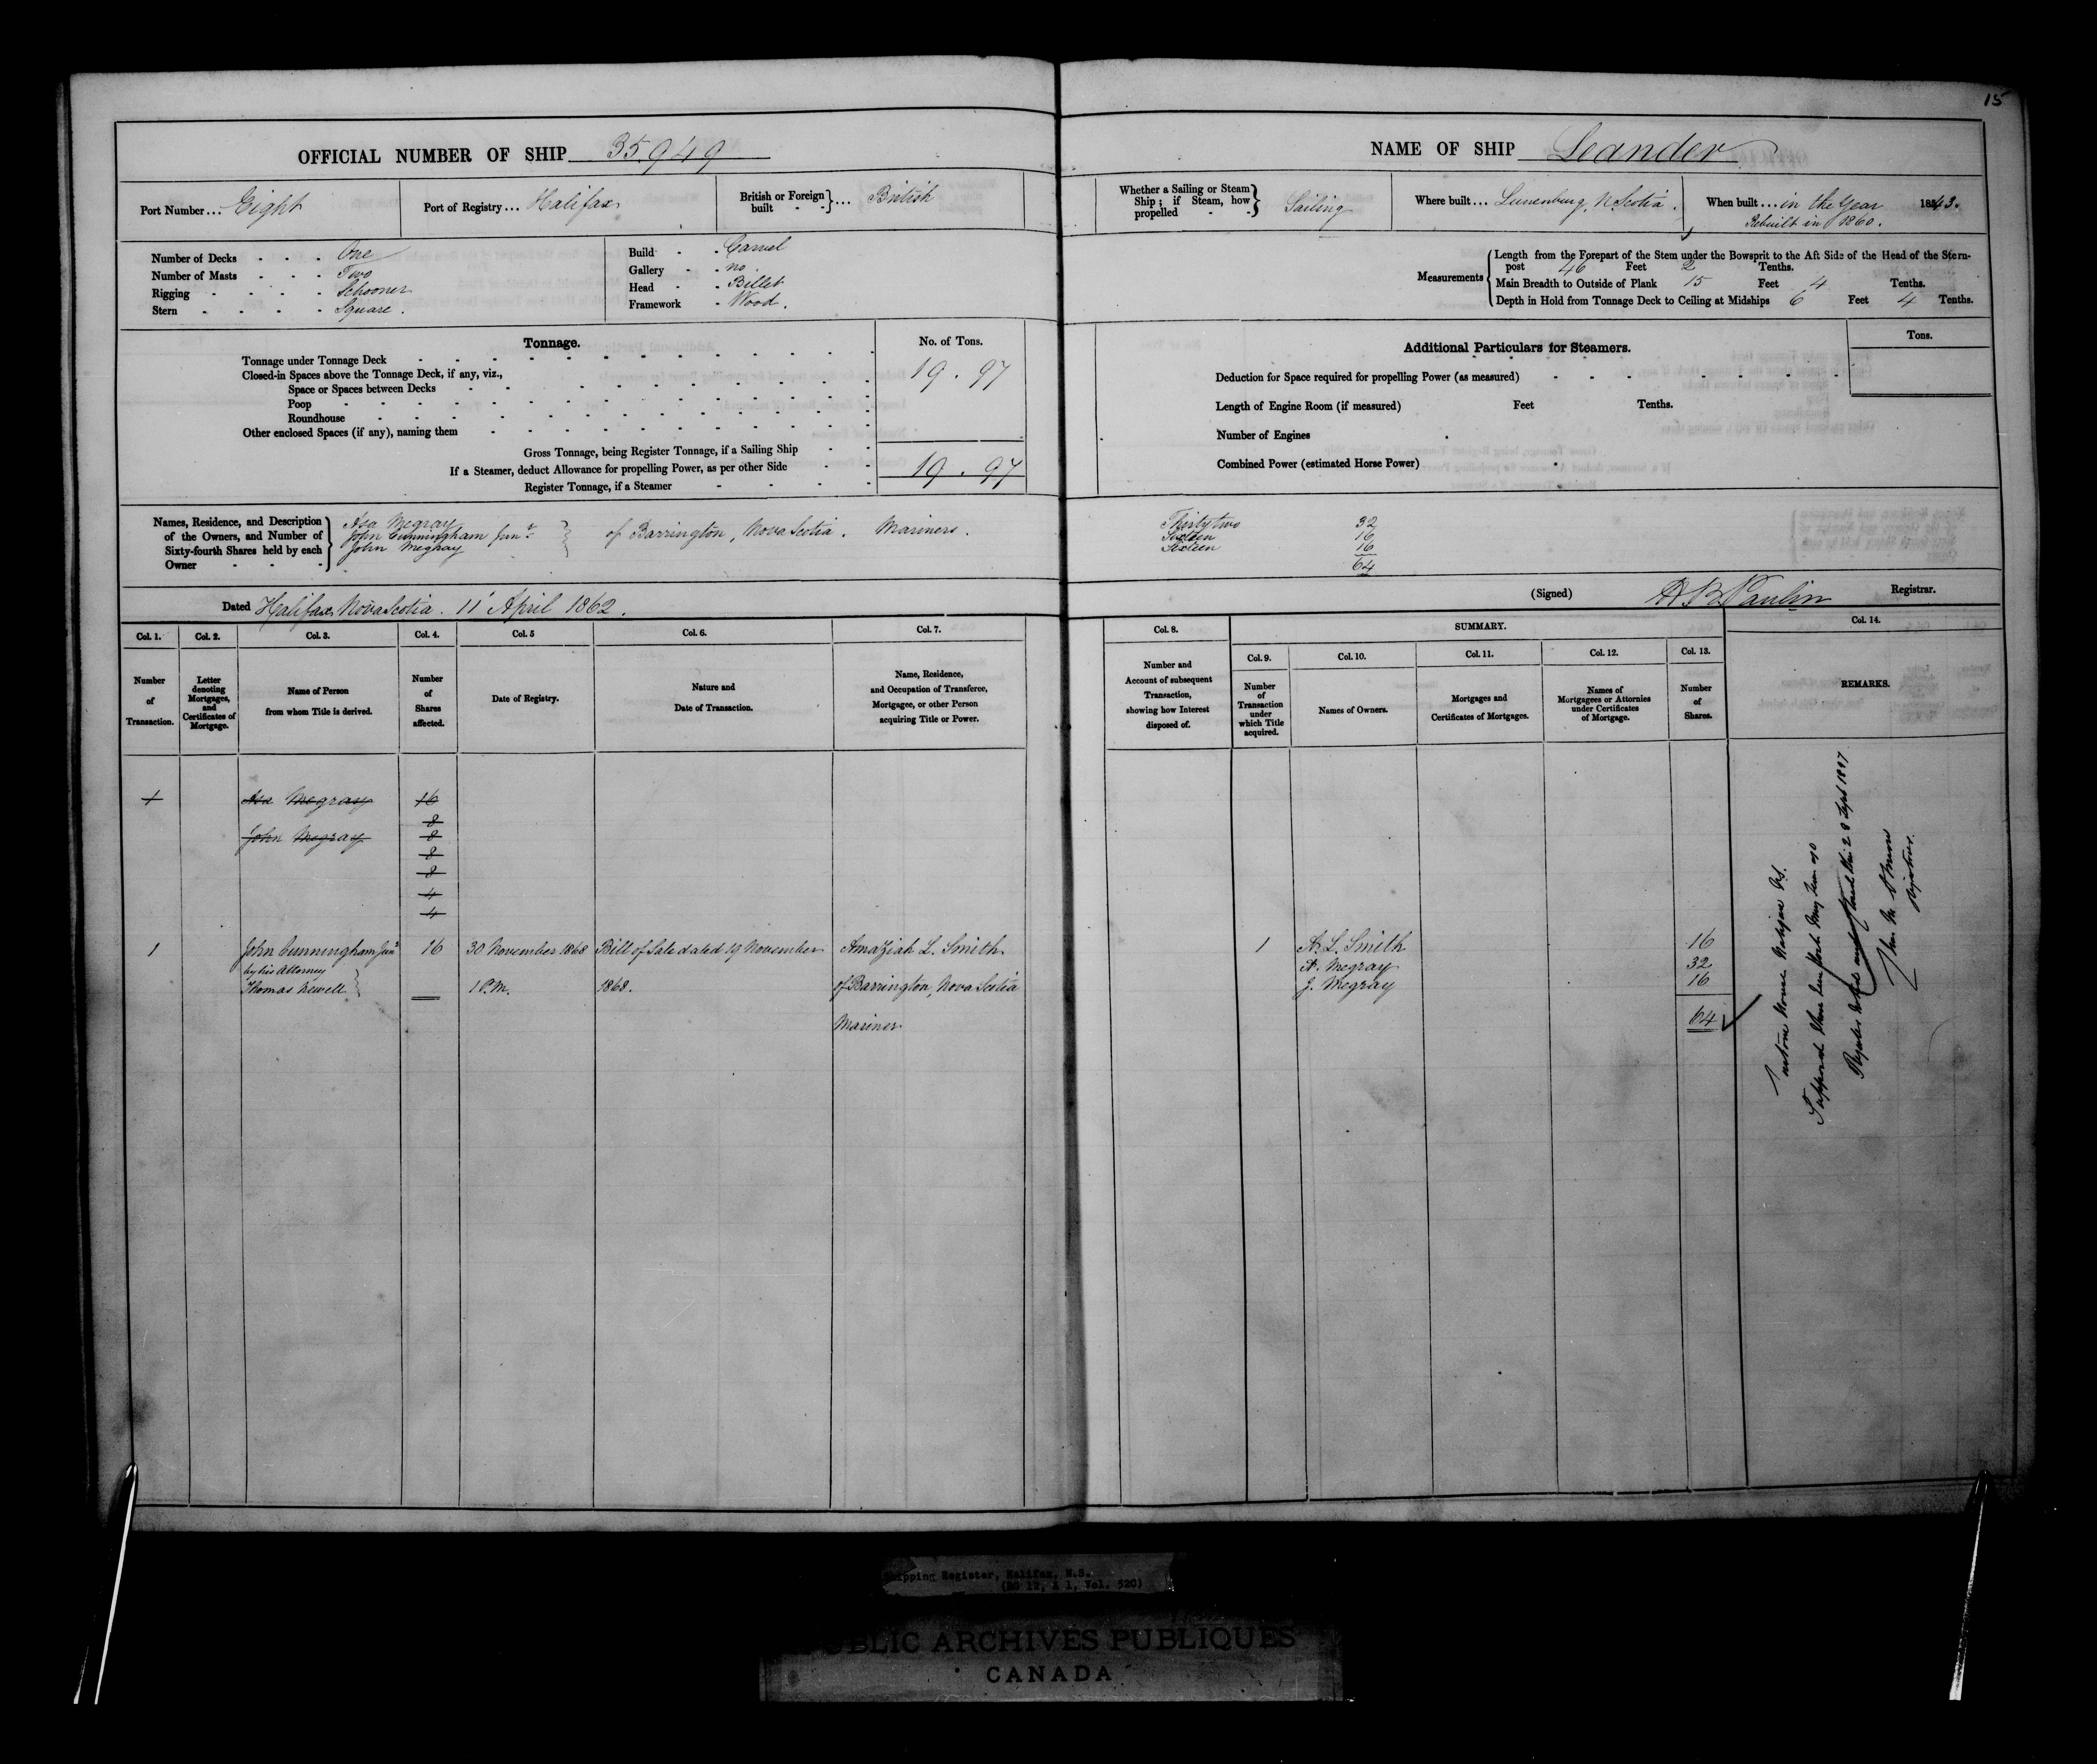 15
OFFICIAL NUMBER OF SHIP 35949
NAME OF SHIP Leander
Port Number... Eight
Port of Registry... Halifax
British or Foreign built - - }... British
Whether a Sailing or Steam Ship; if Steam, how propelled - - } Sailing
Where built... Lunenburg, N. Scotia.
When built... in the Year 1843.
Rebuilt in 1860.
Number of Decks - - - One
Number of Masts - - - Two
Rigging - - - - Schooner
Stern - - - - Square.
Build - - Carvel
Gallery - - no.
Head - - Billet
Framework - Wood.
Measurements
Length from the Forepart of the Stem under the Bowsprit to the Aft Side of the Head of the Stern-
post 46 Feet 2 Tenths.
Main Breadth to Outside of Plank 15 Feet 4 Tenths.
Depth in Hold from Tonnage Deck to Ceiling at Midships 6 Feet 4 Tenths.
Tonnage.
No. of Tons.
Tonnage under Tonnage Deck 19.97
Closed-in Spaces above the Tonnage Deck, if any, viz.,
Space or Spaces between Decks
Poop
Roundhouse
Other enclosed Spaces (if any), naming them
Gross Tonnage, being Register Tonnage, if a Sailing Ship
If a Steamer, deduct Allowance for propelling Power, as per other Side
19.97
Register Tonnage, if a Steamer
Additional Particulars for Steamers.
Tons.
Deduction for Space required for propelling Power (as measured)
Length of Engine Room (if measured) Feet Tenths.
Number of Engines
Combined Power (estimated Horse Power)
Names, Residence, and Description of the Owners, and Number of Sixty-fourth Shares held by each Owner
Asa Megray Thirty two 32
John Cunningham Junr } of Barrington, Nova Scotia. Mariners. Sixteen 16
John Megray Sixteen 16
64
Dated Halifax Nova Scotia. 11 April 1862.
(Signed) Registrar.
Col. 1. Col. 2. Col. 3. Col. 4. Col. 5 Col. 6. Col. 7.
Number of Transaction.
Letter denoting Mortgages, and Certificates of Mortgage.
Name of Person from whom Title is derived.
Number of Shares affected.
Date of Registry.
Nature and Date of Transaction.
Name, Residence, and Occupation of Transferee, Mortgagee, or other Person acquiring Title or Power.
Col. 8.
SUMMARY.
Col. 14.
Col. 9. Col. 10. Col. 11. Col. 12. Col. 13.
Number and Account of subsequent Transaction, showing how Interest disposed of.
Number of Transaction under which Title acquired.
Names of Owners.
Mortgages and Certificates of Mortgages.
Names of Mortgagees or Attornies under Certificates of Mortgage.
Number of Shares.
REMARKS.
1 Asa Megray 16
8
John Megray 8
8
8
4
4
1 John Cunningham Junr 16 30 November 1868 Bill of Sale dated 19 November Amaziah L. Smith
by his Attorney
Thomas Newell } 1 P.M. 1868. of Barrington, Nova Scotia
Mariner
1 A. L. Smith 16
A. Megray 32
J. Megray 16
64
Registrar.
Shipping Register, Halifax, N.S.
(RG 12, A 1, Vol. 520)
PUBLIC ARCHIVES PUBLIQUES
CANADA